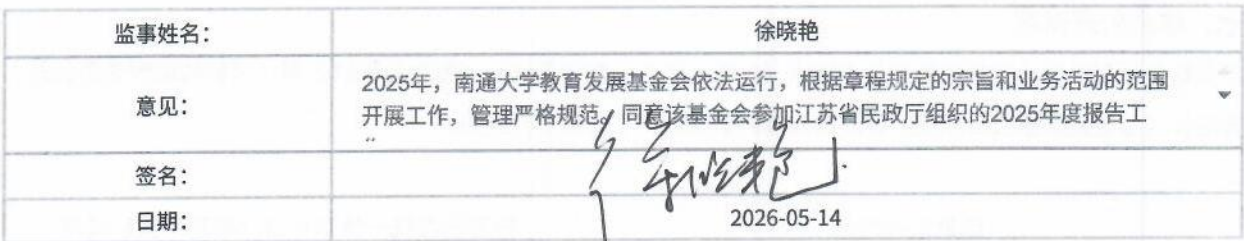 监事姓名： 徐晓艳
意见： 2025年，南通大学教育发展基金会依法运行，根据章程规定的宗旨和业务活动的范围
开展工作，管理严格规范。同意该基金会参加江苏省民政厅组织的2025年度报告工
签名： 徐晓艳
日期： 2026-05-14